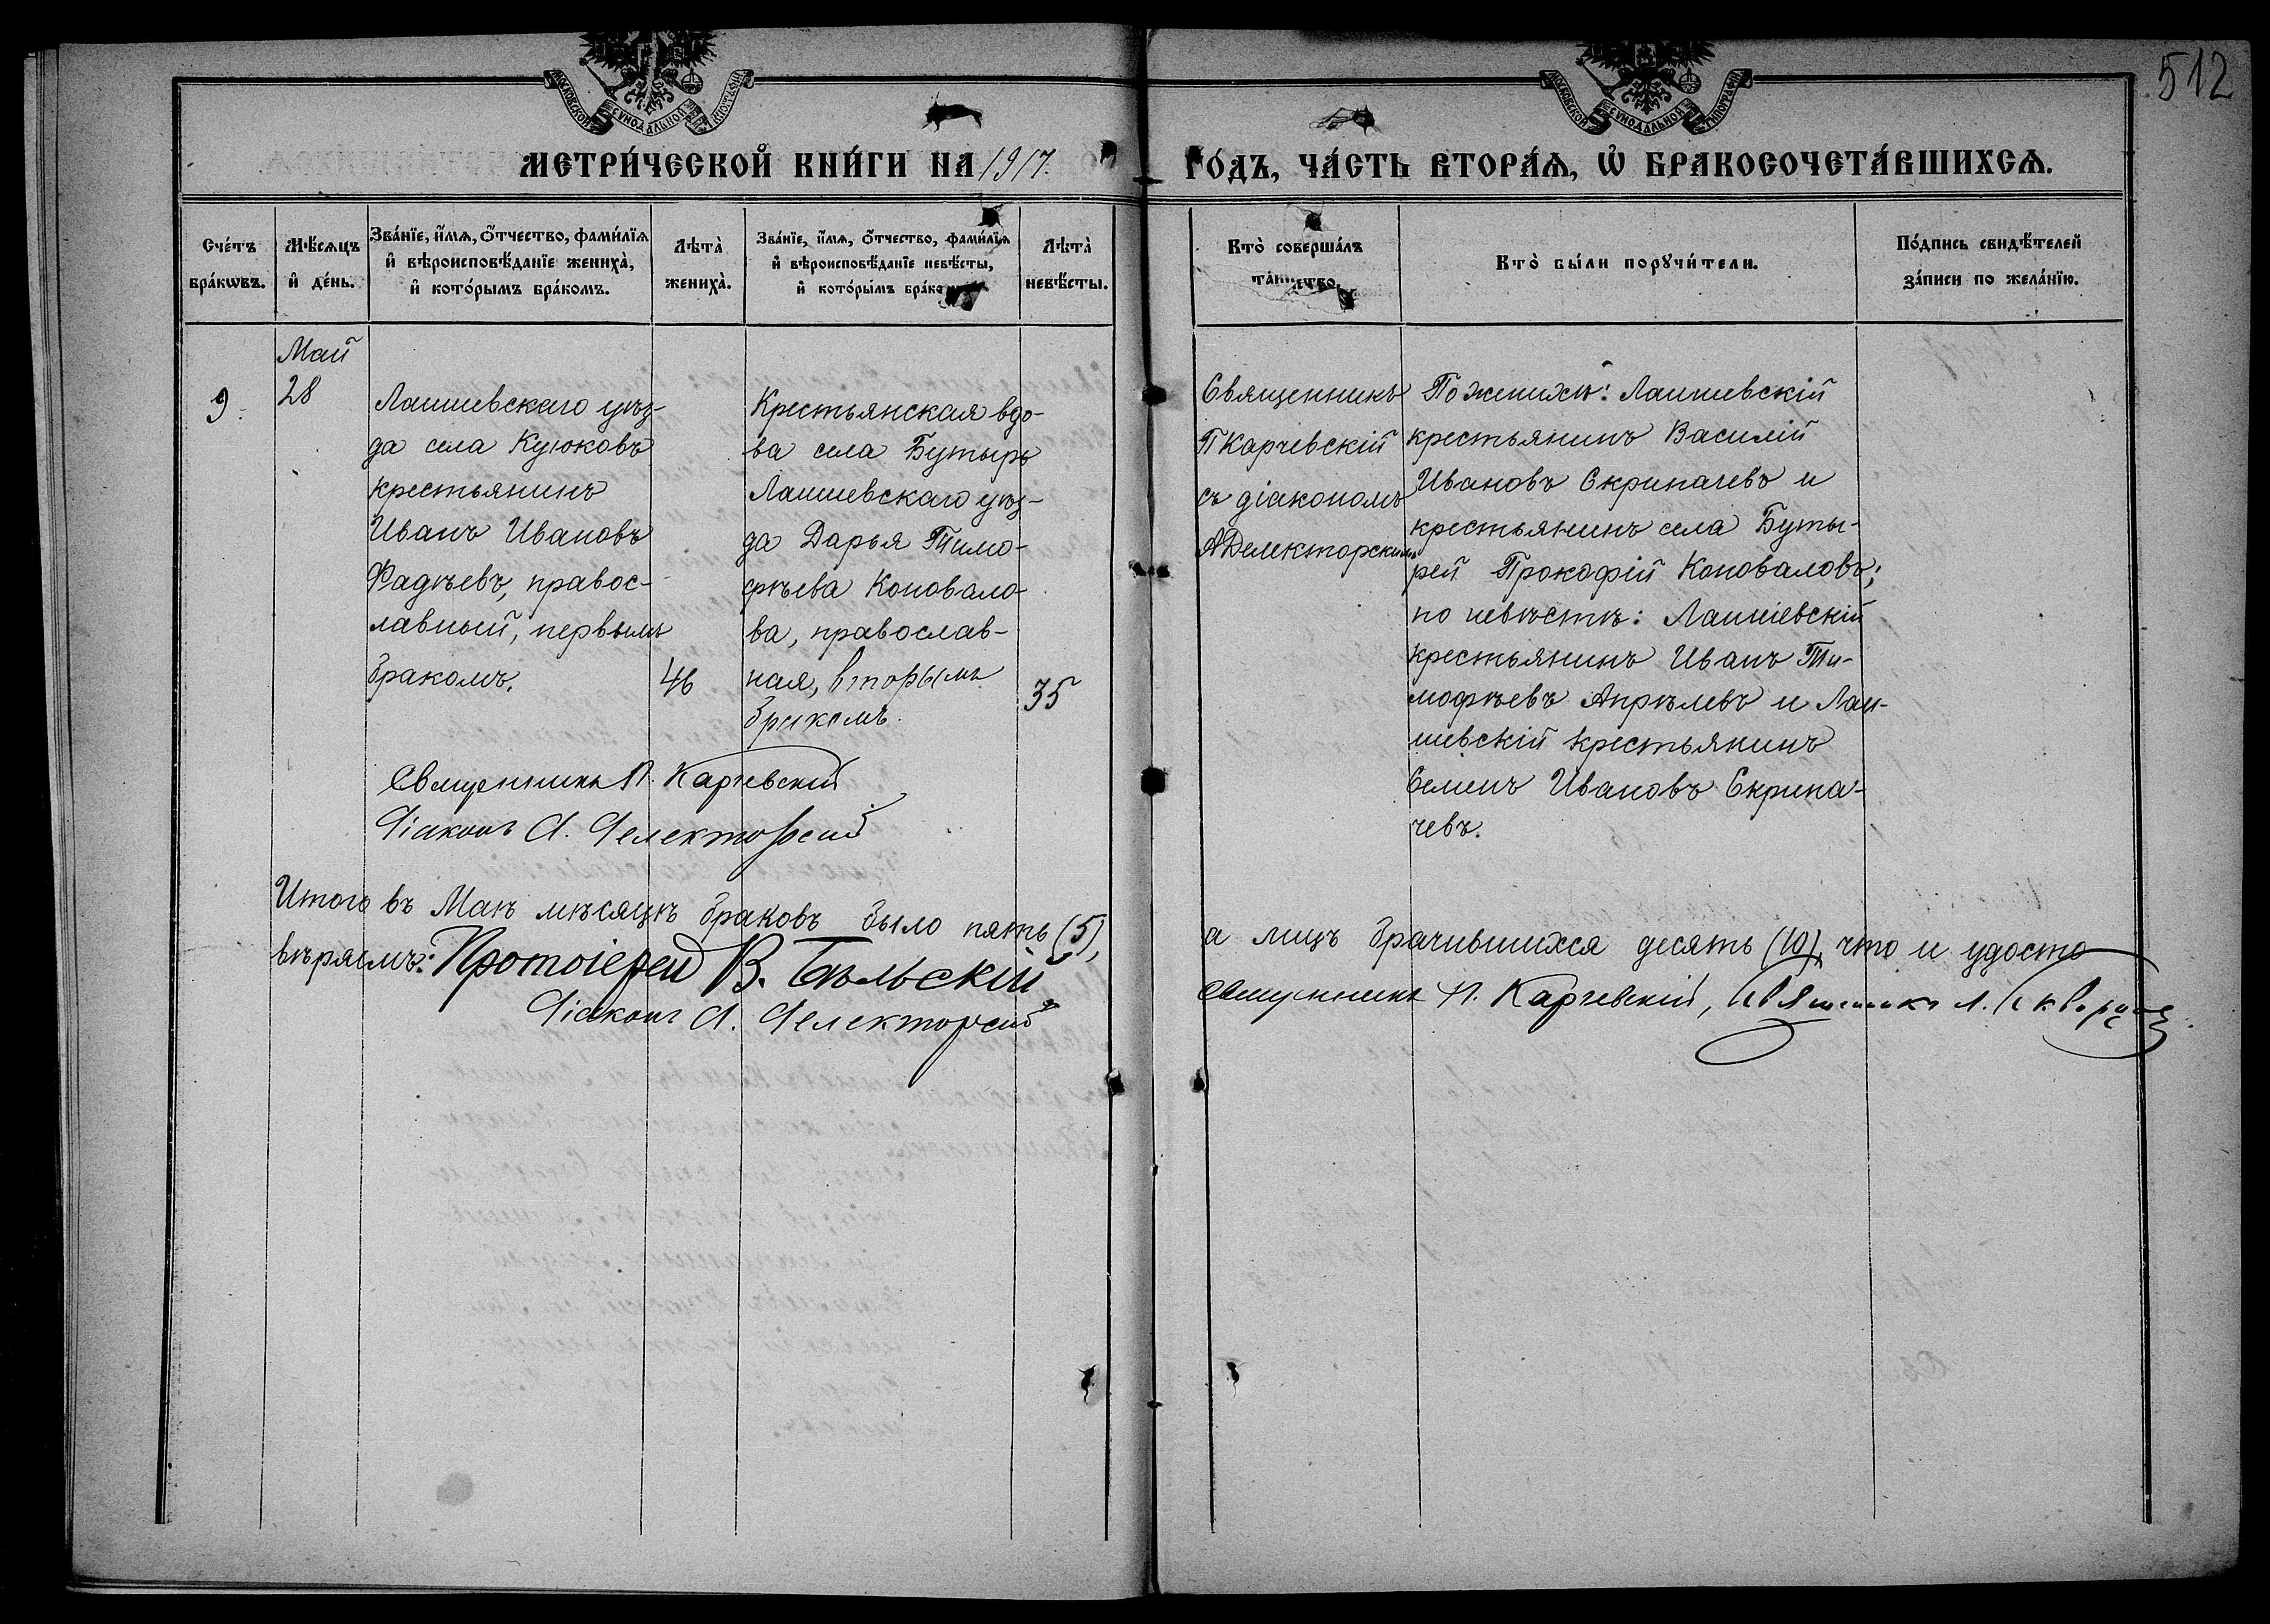 512
МОСКОВСКОЙ СѴНОДАЛЬНОЙ ТИПОГРАФІИ
МОСКОВСКОЙ СѴНОДАЛЬНОЙ ТИПОГРАФІИ
МЕТРИ́ЧЕСКОЙ КНИ́ГИ НА 1917.
ГО́ДЪ, ЧА́СТЬ ВТОРА́Ѧ, Ѡ҆ БРАКОСОЧЕТА́ВШИХСѦ.
Сче́тъ
бра́кѡвъ.
Мѣ́сѧцъ
и҆ де́нь.
Зва́нїе, и҆́мѧ, ѻ҆́тчество, фами́лїѧ
и҆ вѣроисповѣ́данїе жениха̀,
и҆ кото́рымъ бра́комъ.
Лѣта̀
жениха̀.
Зва́нїе, и҆́мѧ, ѻ҆́тчество, фами́лїѧ
и҆ вѣроисповѣ́данїе невѣ́сты,
и҆ кото́рымъ бра́ко
Лѣта̀
невѣ́сты.
Кто̀ соверша́лъ
та́инство.
Кто̀ бы́ли порꙋчи́тели.
По́дпись свидѣ́телей
за́писи по жела́нїю.
9.
Май
28
Лаишевскаго уѣз-
да села Куюковъ
крестьянинъ
Иванъ Ивановъ
Фадѣевъ, правос-
лавный, первымъ
бракомъ.
46
Крестьянская вдо-
ва села Бутырь
Лаишевскаго уѣз-
да Дарья Тимо-
фѣева Коновало-
ва, православ-
ная, вторымъ
бракомъ.
35
Священникъ П. Карчевскій
Діаконъ А. Делекторскій
Священникъ
П Карчевскій
съ діакономъ
А Делекторскимъ
По женихѣ: Лаишевскій
крестьянинъ Василій
Ивановъ Скрипачевъ и
крестьянинъ села Буты-
рей Прокофій Коноваловъ;
по невѣстѣ: Лаишевскій
крестьянинъ Иванъ Ти-
мофѣевъ Апрѣлевъ и Лаи-
шевскій крестьянинъ
Семенъ Ивановъ Скрипа-
чевъ.
Итого въ Маѣ мѣсяцѣ браковъ было пять (5),
а лицъ брачившихся десять (10), что и удосто
вѣряемъ: Протоіерей В. Бѣльскій
Священникъ П. Карчевскій, Священникъ А. Скворцов
Діаконъ А. Делекторскій